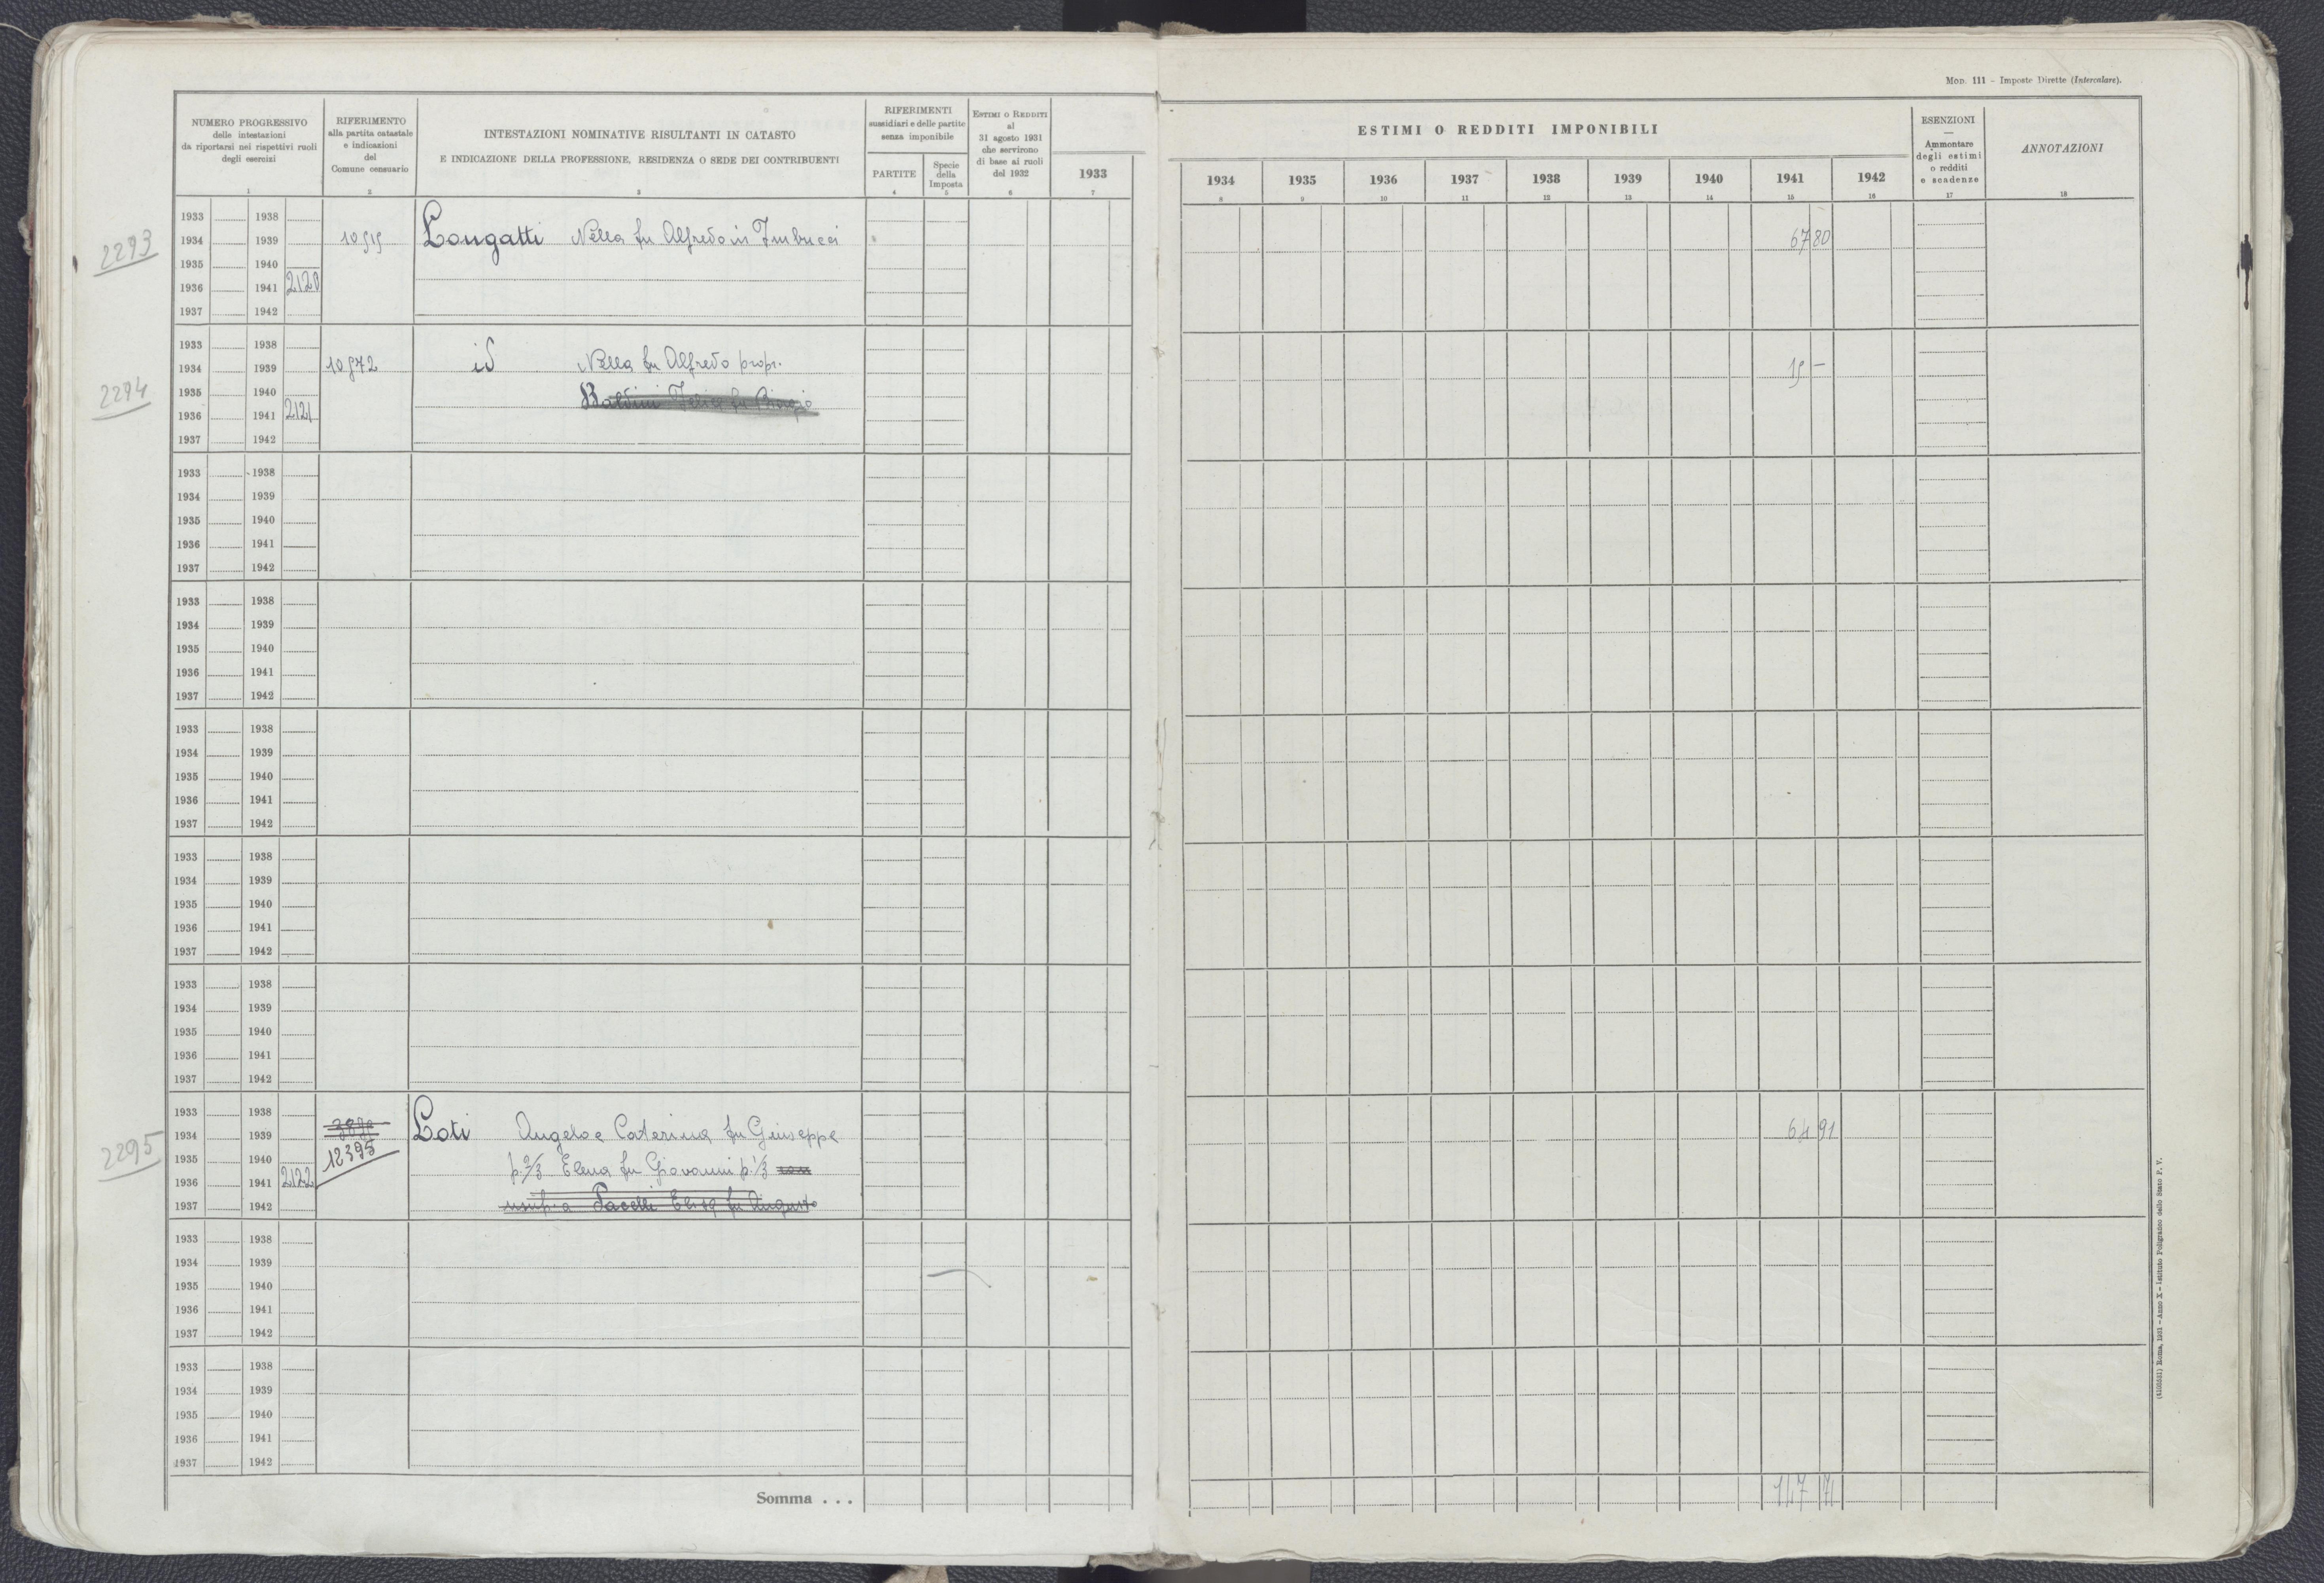 MOD. 111 - Imposte Dirette (Intercalare).
NUMERO PROGRESSIVO
delle intestazioni
da riportarsi nei rispettivi ruoli
degli esercizi
1
RIFERIMENTO
alla partita catastale
e indicazioni
del
Comune censuario
2
INTESTAZIONI NOMINATIVE RISULTANTI IN CATASTO
E INDICAZIONE DELLA PROFESSIONE, RESIDENZA O SEDE DEI CONTRIBUENTI
3
RIFERIMENTI
sussidiari e delle partite
senza imponibile
PARTITE
4
Specie
della
Imposta
5
ESTIMI O REDDITI
al
31 agosto 1931
che servirono
di base ai ruoli
del 1932
6
1933
7
ESTIMI O REDDITI IMPONIBILI
1934 1935 1936 1937 1938 1939 1940 1941 1942
8 9 10 11 12 13 14 15 16
ESENZIONI
—
Ammontare
degli estimi
o redditi
e scadenze
17
ANNOTAZIONI
18
2293
1933 1938
1934 1939
1935 1940
1936 1941 2120
1937 1942
Longatti Nella fu Alfredo in
67 80
2294
1933 1938
1934 1939 10972
1935 1940
1936 1941 2121
1937 1942
id Nella fu Alfredo propr.
Baldini
1933 1938
1934 1939
1935 1940
1936 1941
1937 1942
1933 1938
1934 1939
1935 1940
1936 1941
1937 1942
1933 1938
1934 1939
1935 1940
1936 1941
1937 1942
1933 1938
1934 1939
1935 1940
1936 1941
1937 1942
1933 1938
1934 1939
1935 1940
1936 1941
1937 1942
2295
1933 1938
1934 1939
1935 1940 12395
1936 1941 2122
1937 1942
Loti Angela e Caterina fu Giuseppe
p. 2/3 Elena fu Giovanni p. 1/3
usuf. a Pacelli Elisa fu Augusto
64 91
1933 1938
1934 1939
1935 1940
1936 1941
1937 1942
1933 1938
1934 1939
1935 1940
1936 1941
1937 1942
Somma . . .
147 71
(4105531) Roma, 1931 - Anno X - Istituto Poligrafico dello Stato P. V.